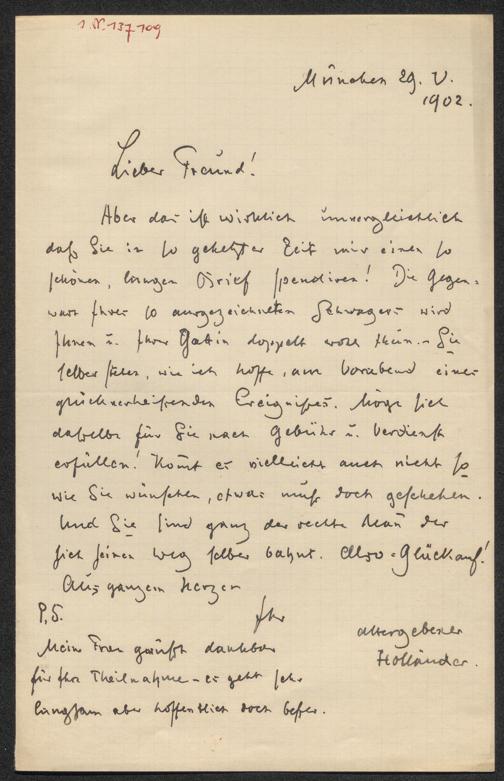 I.N. 137109
München 29. V.
1902.
Lieber Freund!
Aber das ist wirklich unvergleichlich
daß Sie in so gehetzter Zeit mir einen so
schönen, langen Brief spendiren! Die Gegen-
wart Ihres so ausgezeichneten Schwagers wird
Ihnen u. Ihrer Gattin doppelt wohl thun. – Sie
selber stehen, wie ich hoffe, am Vorabend eines
glückverheißenden Ereignißes. Möge sich
dasselbe für Sie nach Gebühr u. Verdienst
erfüllen! Kom̄t es vielleicht auch nicht so
wie Sie wünschen, etwas muß doch geschehen.
Und Sie sind ganz der rechte Man̄ der
sich seinen Weg selber bahnt. Also = Glückauf!
Aus ganzem Herzen
Ihr
allergebener
Holländer.
P.S.
Meine Frau grüßt dankbar
für Ihre Theilnahme – es geht sehr
langsam aber hoffentlich doch besser.